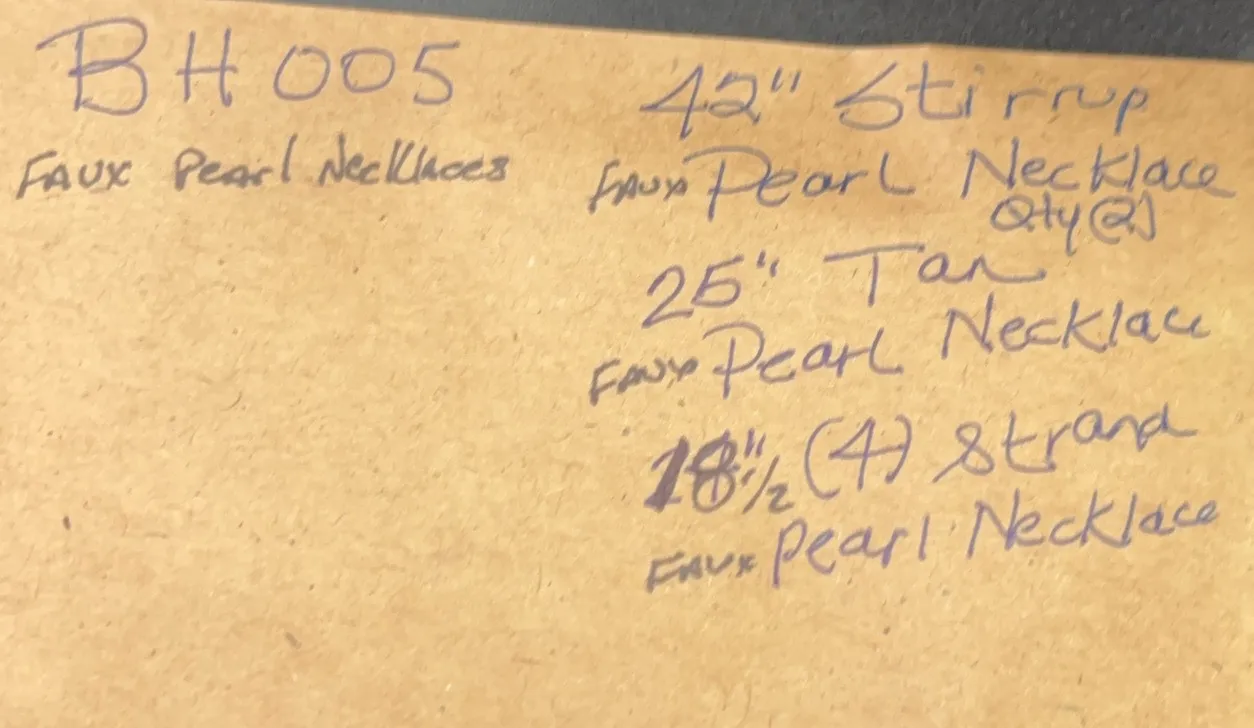 BH005
FAUX Pearl Necklaces
42" Stirrup
FAUX Pearl Necklace
Qty (2)
25" Tan
FAUX Pearl Necklace
18"1/2 (4) Strand
FAUX Pearl Necklace